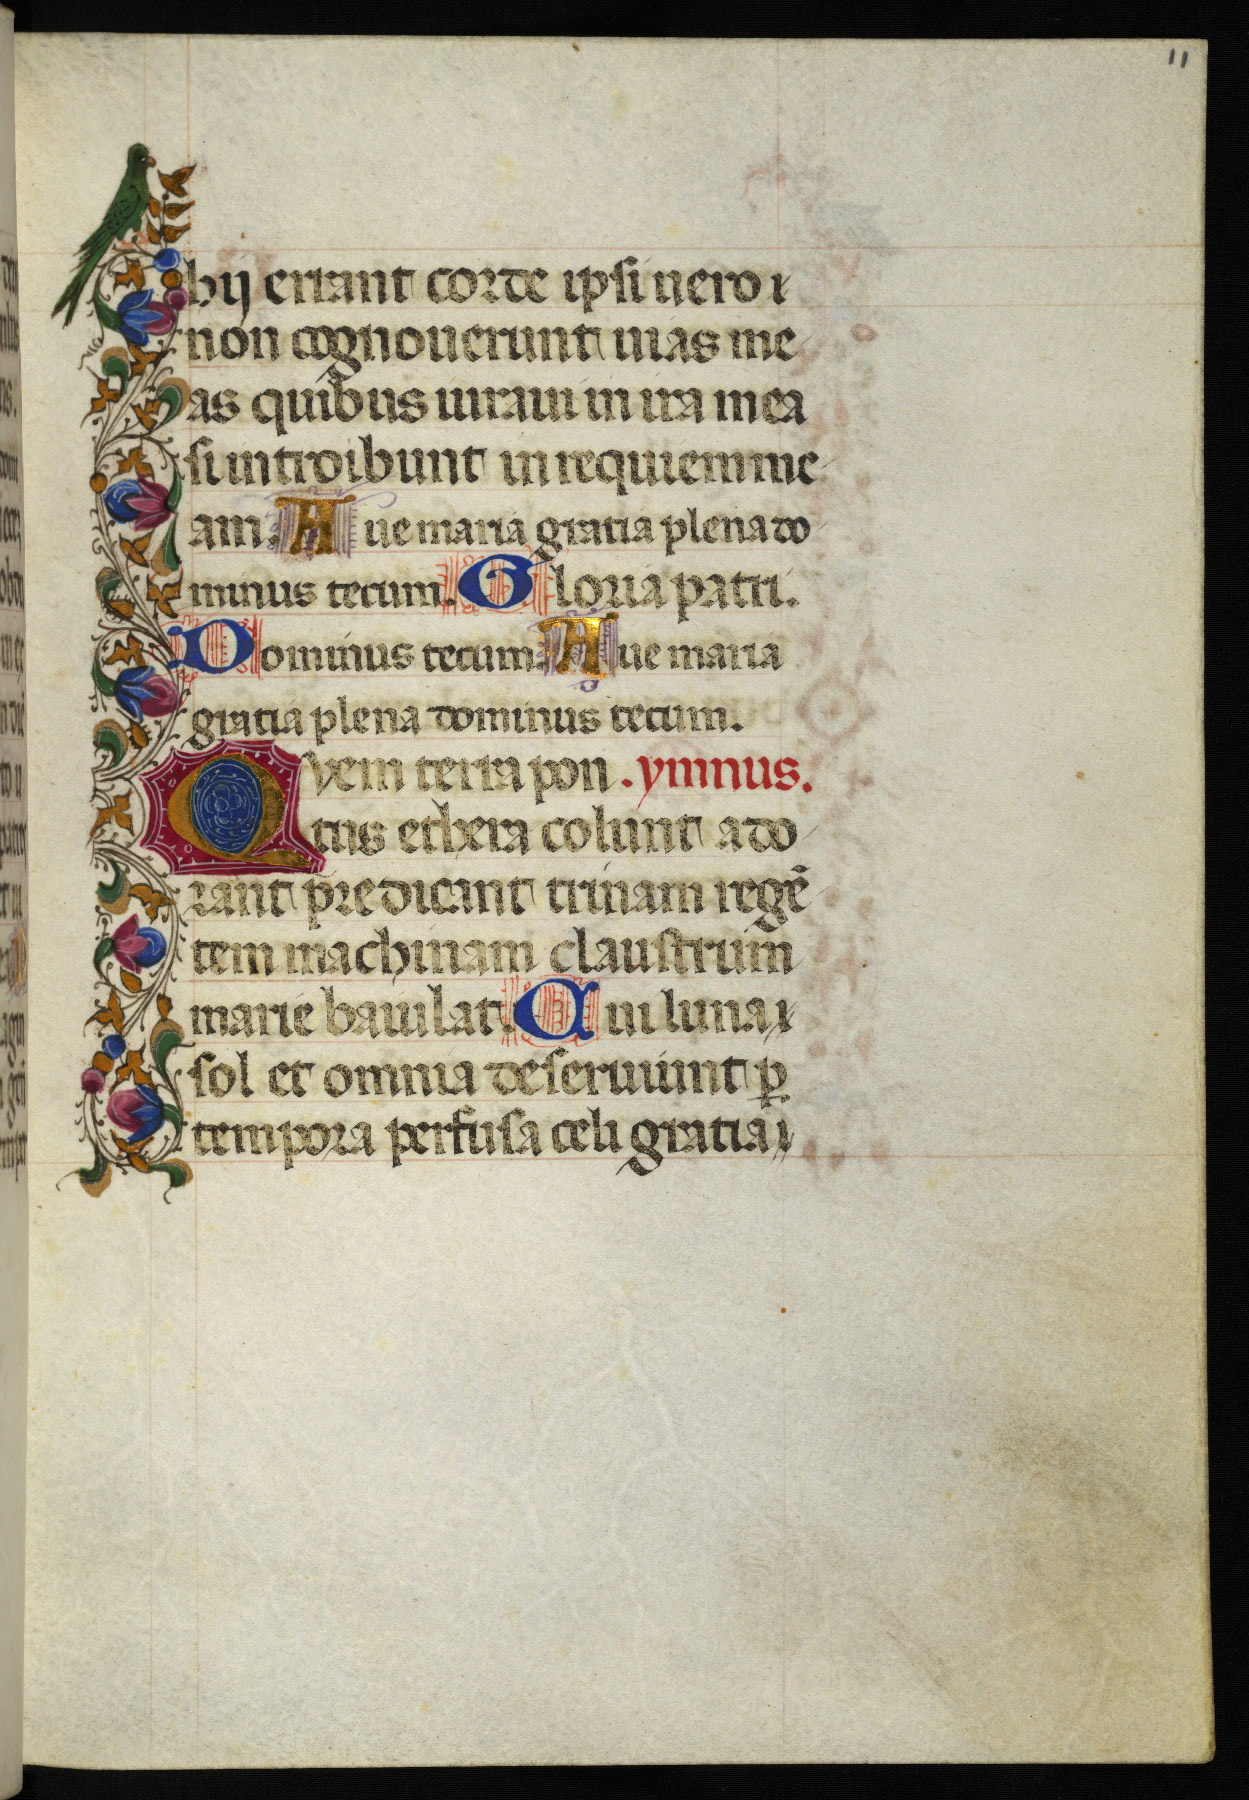 11
hij errant corde ipsi uero ⁊
non cognouerunt uias me
as quibus iuraui in ira mea
si introibunt in requiem me
am. Aue maria gratia plena do
minus tecum. Gloria patri.
Dominus tecum. Aue maria
gratia plena dominus tecum.
Qvem terra pon .ymnus.
tus ethera colunt ado
rant predicant trinam regẽ
tem machinam claustrum
marie baiulat. Cui luna ⁊
sol et omnia deseruiunt ꝑ
tempora perfusa celi gratia ⁊